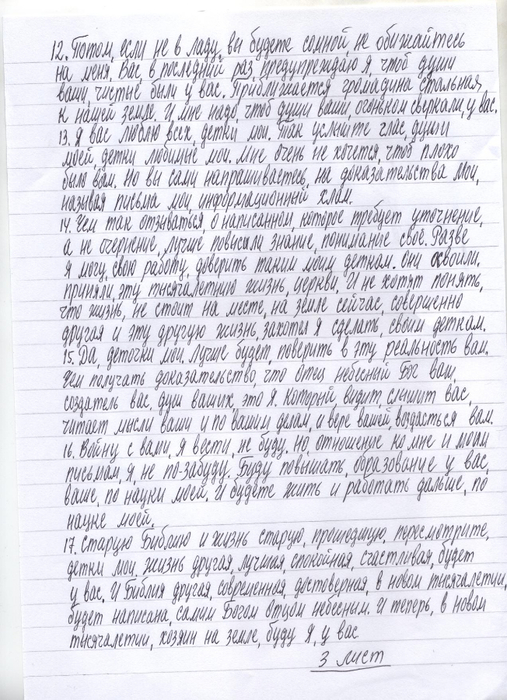 12. Потом, если не в ладу, вы будете сомной, не обижайтесь
на меня. Вас, в последний раз, предупреждаю я, чтоб души
ваши, чистые были у вас. Приближается громадина стальная,
к нашей земле. И мне надо, чтоб души ваши, огоньком сверкали, у вас.
13. Я вас люблю всех, детки мои. Так услышьте глас, души
моей детки любимые мои. Мне очень не хочется, чтоб плохо
было вам. Но вы сами напрашиваетесь, на доказательства мои,
называя письма мои, информационный хлам.
14. Чем так отзываться, о написанном, которое требует уточнение,
а не очернение, лучше повысьли знание, понимание своё. Разве
я могу, свою работу, доверить таким моим деткам. Они освоили,
приняли, эту тысячалетнию жизнь, церкви. И не хотят понять,
что жизнь, не стоит на месте, на земле сейчас, совершенно
другая и эту другую жизнь, захотел я сделать, своим деткам.
15. Да, деточки мои, лучше будет, поверить в эту реальность вам.
Чем получать доказательство, что отец небесный Бог ваш,
создатель вас, душ ваших, это я. Который видит, слышит вас,
читает мысли ваши и по вашим делам, и вере вашей, воздасться вам.
16. Войну с вами, я вести, не буду. Но, отношение ко мне и моим
письмам, я, не по-забуду. Буду повышать, образование у вас,
ваше, по науки моей. И будете жить и работать дальше, по
науке моей.
17. Старую Библию и жизнь старую, прошедшую, пересмотрите,
детки мои, жизнь другая, лучшия, спокойная, счастливая, будет
у вас. И Библия другая, современная, достоверная, в новом тысячалетии,
будет написана, самим Богом отцом небесным. И теперь, в новом
тысячалетии, хозяин на земле, буду я, у вас
3 лист